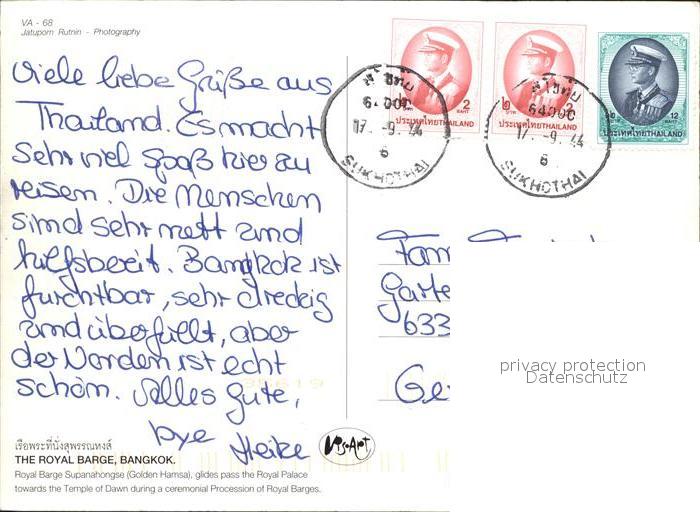 VA - 68
Jatuporn Rutnin - Photography
Viele liebe Grüße aus
Thailand. Es macht
sehr viel Spaß hier zu
reisen. Die Menschen
sind sehr nett und
hilfsbereit. Bangkok ist
furchtbar, sehr dreckig
und überfüllt, aber
der Norden ist echt
schön. Alles Gute,
bye Heike
เรือพระที่นั่งสุพรรณหงส์
THE ROYAL BARGE, BANGKOK.
Royal Barge Supanahongse (Golden Hamsa), glides pass the Royal Palace
towards the Temple of Dawn during a ceremonial Procession of Royal Barges.
2
ประเทศไทยTHAILAND
2
ประเทศไทยTHAILAND
12
ประเทศไทยTHAILAND
64000
17. -9. 44
6
SUKHOTHAI
64000
17. -9. 44
6
SUKHOTHAI
Fam
Garte
633
Ge
privacy protection
Datenschutz